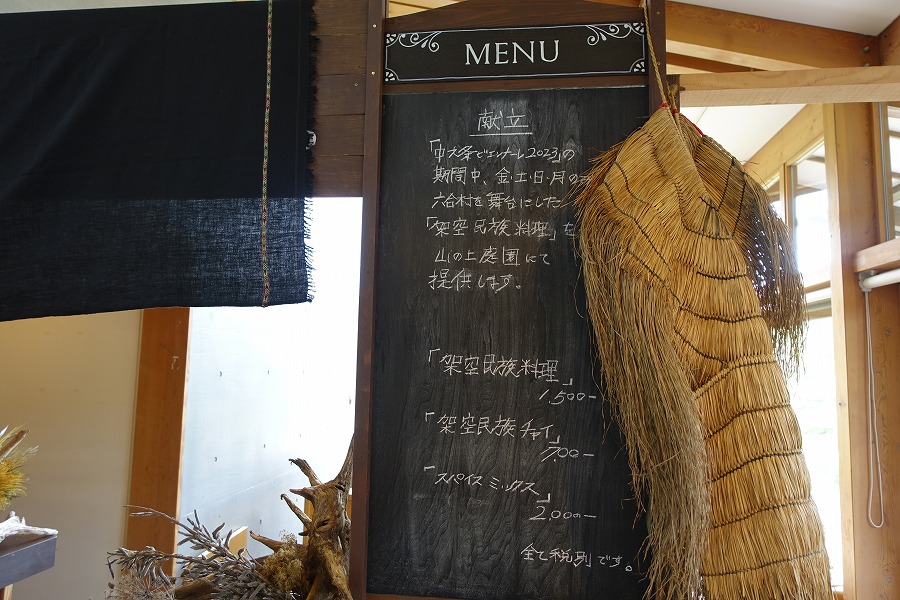 MENU
献立
「中之条ビエンナーレ2023」の
期間中、金・土・日・月の
六合村を舞台にした
「架空民族料理」を
山の上庭園にて
提供します。
「架空民族料理」
1,500-
「架空民族チャイ」
700-
「スパイスミックス」
2,000-
全て税別です。